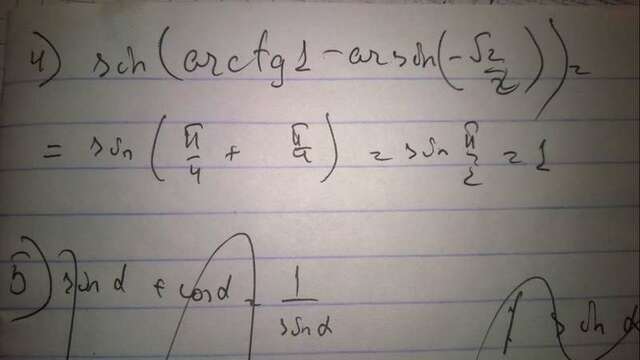 4) sin(arctg1 - arcsin(-√2/2)) =
= sin(π/4 + π/4) = sin π/2 = 1
5) sin α + cos α = 1/sin α
sin α